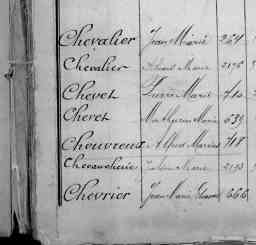 Chevalier Jean Marie 264
Chevalier Marie 2176
Chevet Marie 710
Chevet Mathurin Marie 639
Chevreux Alfred Marius 718
Marie 2193
Chevrier Jean Marie 666